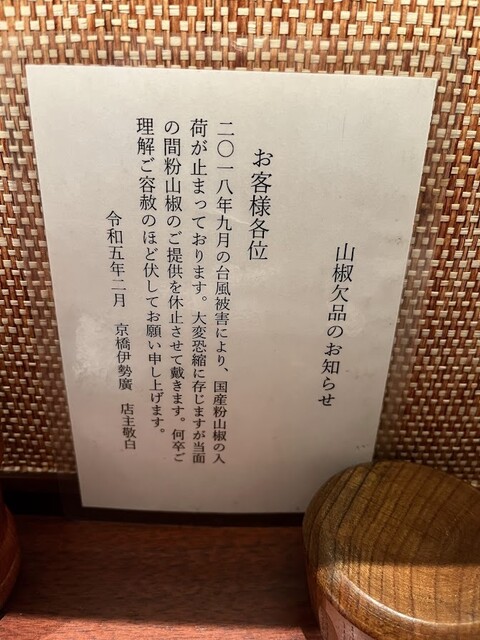 山椒欠品のお知らせ
お客様各位
二〇一八年九月の台風被害により、国産粉山椒の入
荷が止まっております。大変恐縮に存じますが当面
の間粉山椒のご提供を休止させて戴きます。何卒ご
理解ご容赦のほど伏してお願い申し上げます。
令和五年二月 京橋伊勢廣 店主敬白